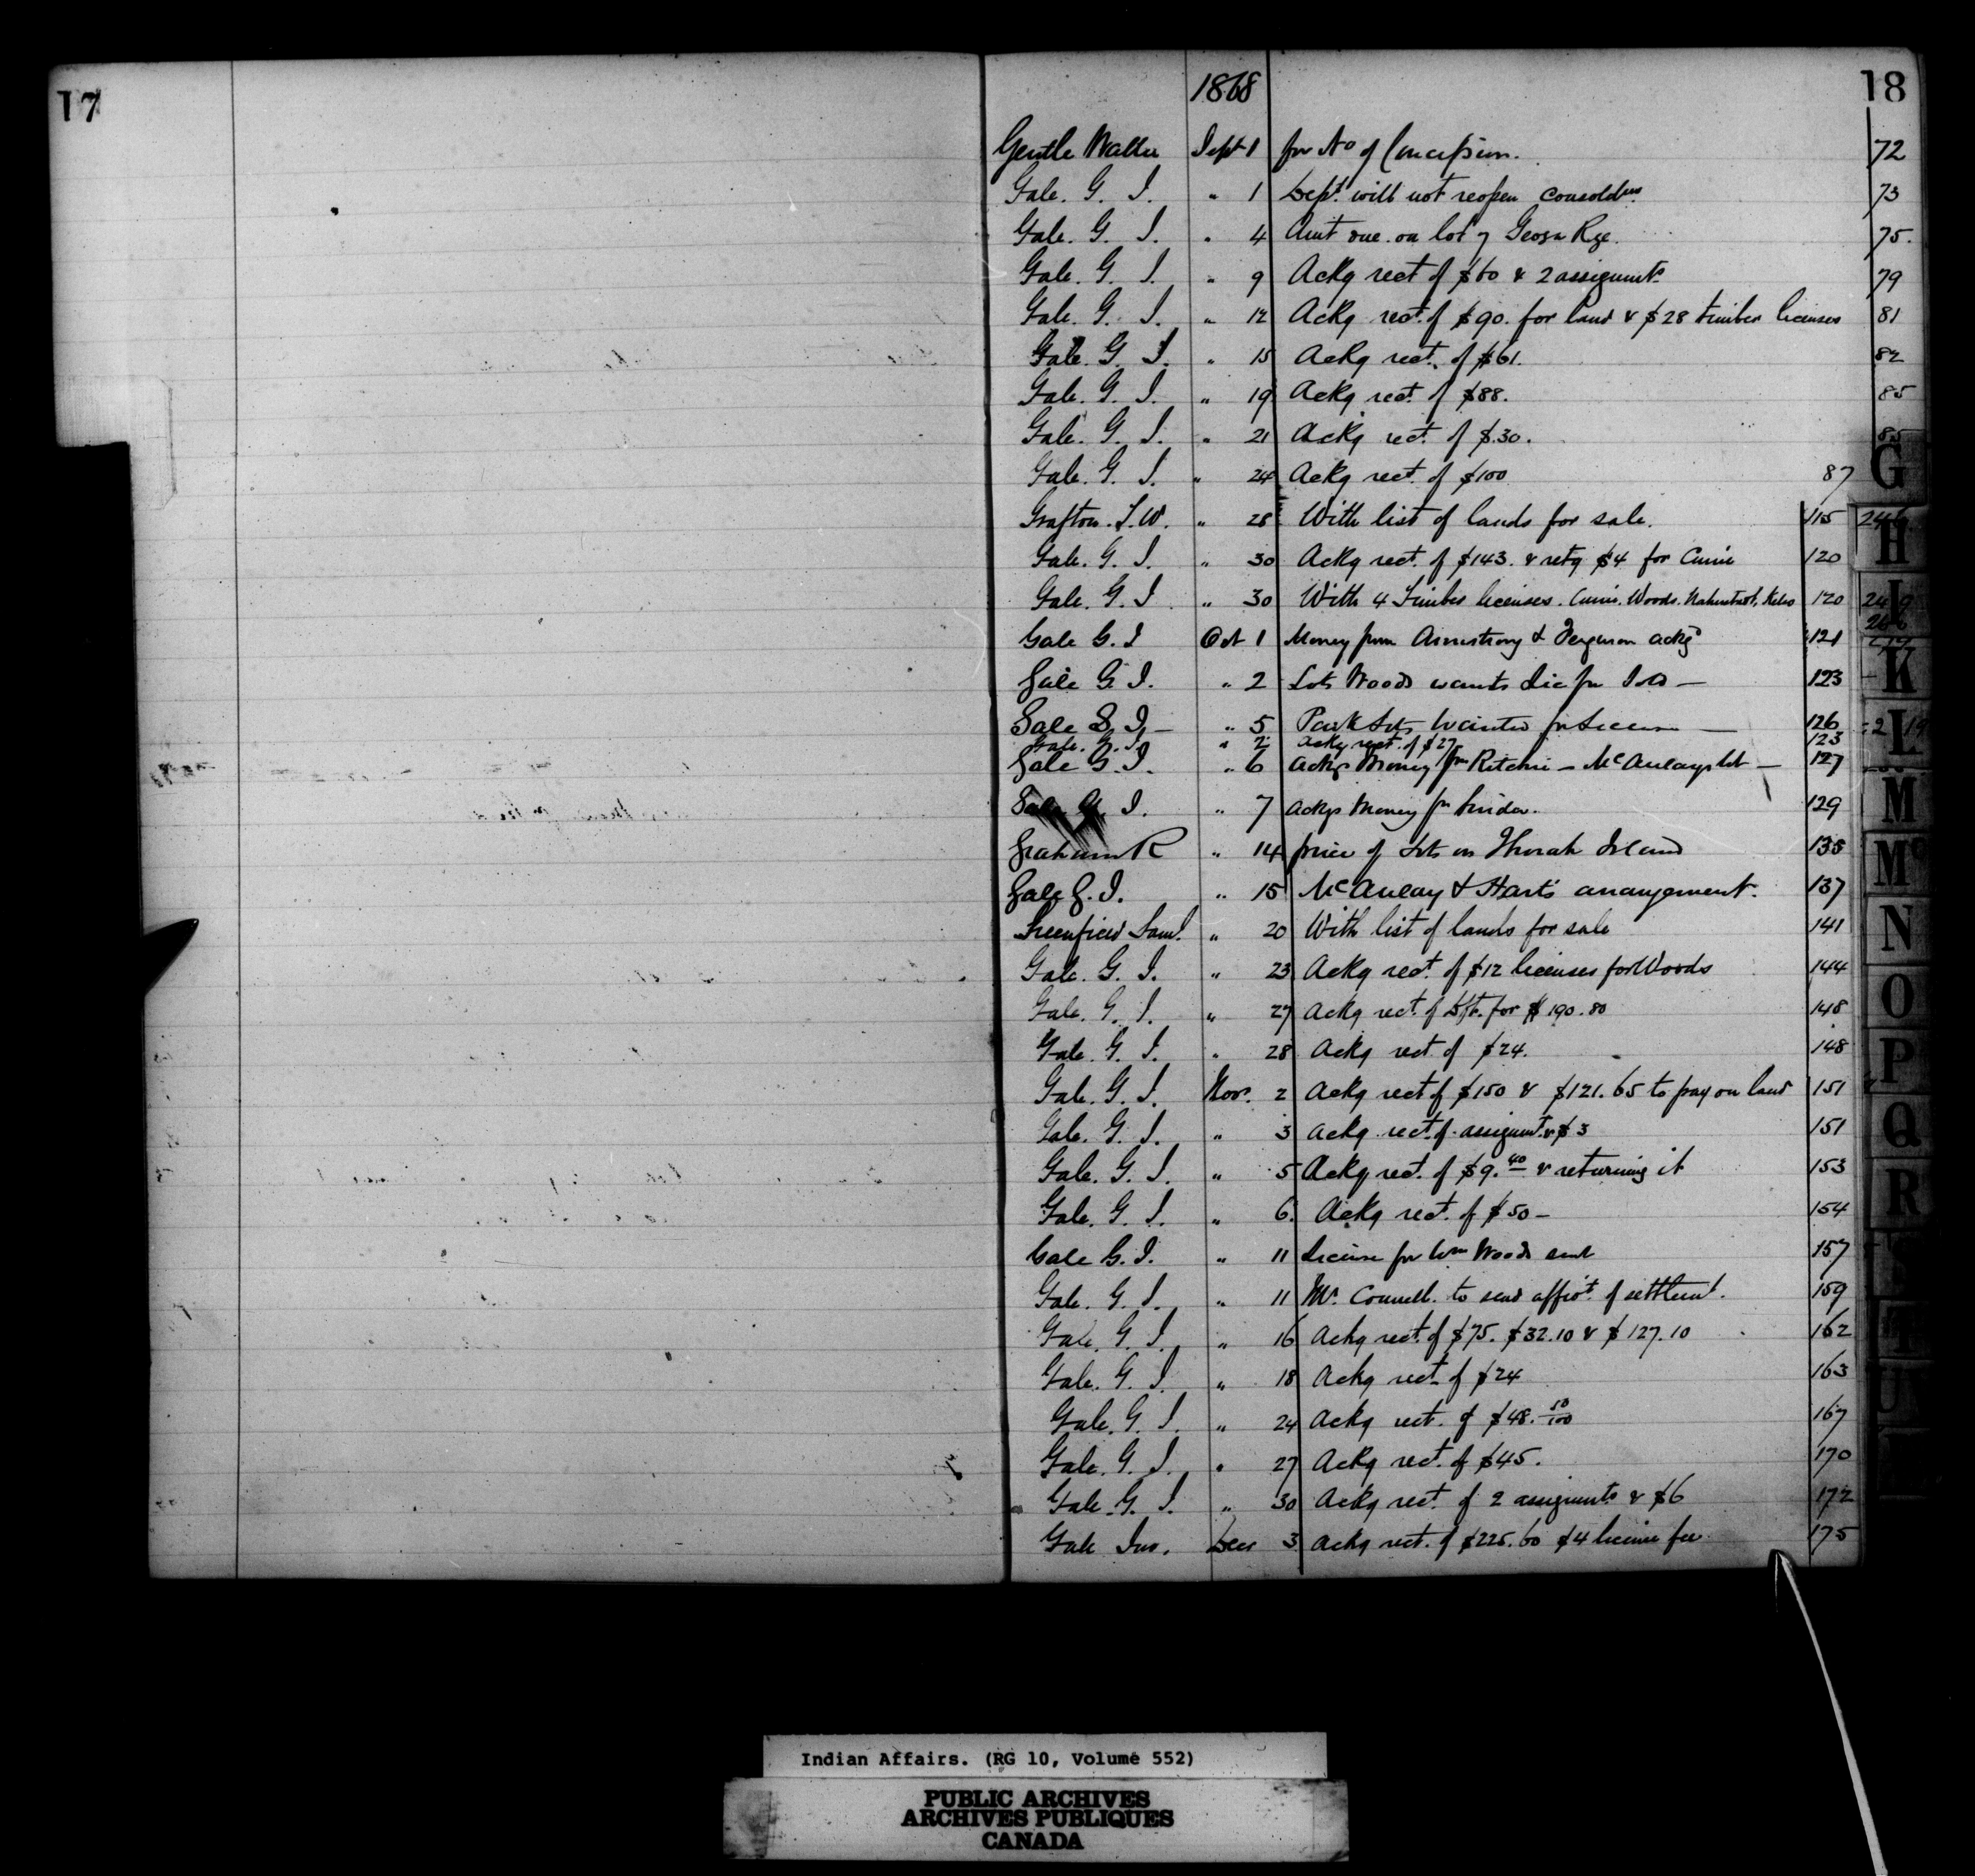 17
18
1868
Gentle Walter Sept 1 for No of Concession. 72
Gale. G. I. " 1 Dept. will not reopen consoldtn. 73
Gale. G. I. " 4 Amt due on lot 7 Geogn Rge. 75.
Gale. G. I. " 9 Ackg rect of $60 & 2 assignmts 79
Gale. G. I. " 12 Ackg rect. of $90. for land & $28 timber licenses 81
Gale. G. I. " 15 Ackg rect. of $61. 82
Gale. G. I. " 19 Ackg rect. of $88. 85
Gale. G. I. " 21 Ackg rect. of $30. 85
Gale. G. I. " 24 Ackg rect. of $100 87
Grafton. T. W. " 28 With list of lands for sale. 115
Gale. G. I. " 30 Ackg rect. of $143. & retg $4 for Currie 120
Gale. G. I " 30 With 4 Timber licenses. Currie. Woods. 120
Gale G. I Oct 1 Money from Armstrong & Ferguson ackgd 121
Gale G. I. " 2 Lots Woods wants Lic for 123
Gale G. I — " 5 Park Lots Wanted for — 126
Gale. G. I " 2 Ackg rect. of $27 123
Gale G. I. " 6 Ackg Money fm Ritchie — McAulays lot — 127
Gale G. I. " 7 Ackgs Money fm 129
Graham R " 14 price of Lots on Thorah Island 135
Gale G. I. " 15 McAulay & Hart's arrangement. 137
Greenfield Saml. " 20 With list of lands for sale 141
Gale. G. I. " 23 Ackg rect. of $12 licenses for Woods 144
Gale. G. I. " 27 Ackg rect. of Dft. for $190.80 148
Gale. G. I. " 28 Ackg rect. of $24. 148
Gale. G. I. Nov. 2 Ackg rect of $150 & $121.65 to pay on land 151
Gale. G. I. " 3 Ackg rect. of assignmt. & $3 151
Gale. G. I. " 5 Ackg rect. of $9.40 & returning it 153
Gale. G. I. " 6. Ackg rect. of $50 — 154
Gale G. I. " 11 License for Wm Woods sent 157
Gale. G. I. " 11 Mr. Connell. to send affidt. of settlemt. 159
Gale. G. I. " 16 Ackg rect. of $75. $32.10 & $127.10 162
Gale. G. I. " 18 Ackg rect. of $24 163
Gale. G. I. " 24 Ackg rect. of $48. 50/100 167
Gale. G. I. " 27 Ackg rect. of $45. 170
Gale. G. I. " 30 Ackg rect. of 2 assignmts & $6 172
Gale Jno. Dec 3 Ackg rect. of $225.60 $4 license fee 175
G
H
I
K
L
M
Mc
N
O
P
Q
R
T
U
Indian Affairs. (RG 10, Volume 552)
PUBLIC ARCHIVES
ARCHIVES PUBLIQUES
CANADA